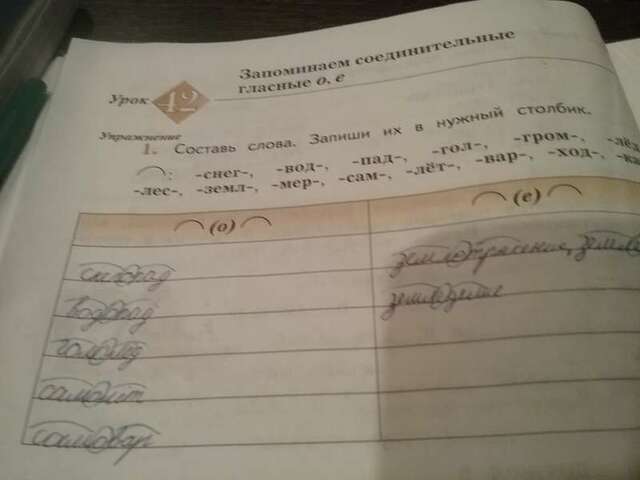 Запоминаем соединительные
Урок 42 гласные о, е
Упражнение
1. Составь слова. Запиши их в нужный столбик.
: -снег-, -вод-, -пад-, -гол-, -гром-, -лёд
-лес-, -земл-, -мер-, -сам-, -лёт-, -вар-, -ход-,
(о) (е)
землетрясение,
снегопад
водопад
гололёд
самолёт